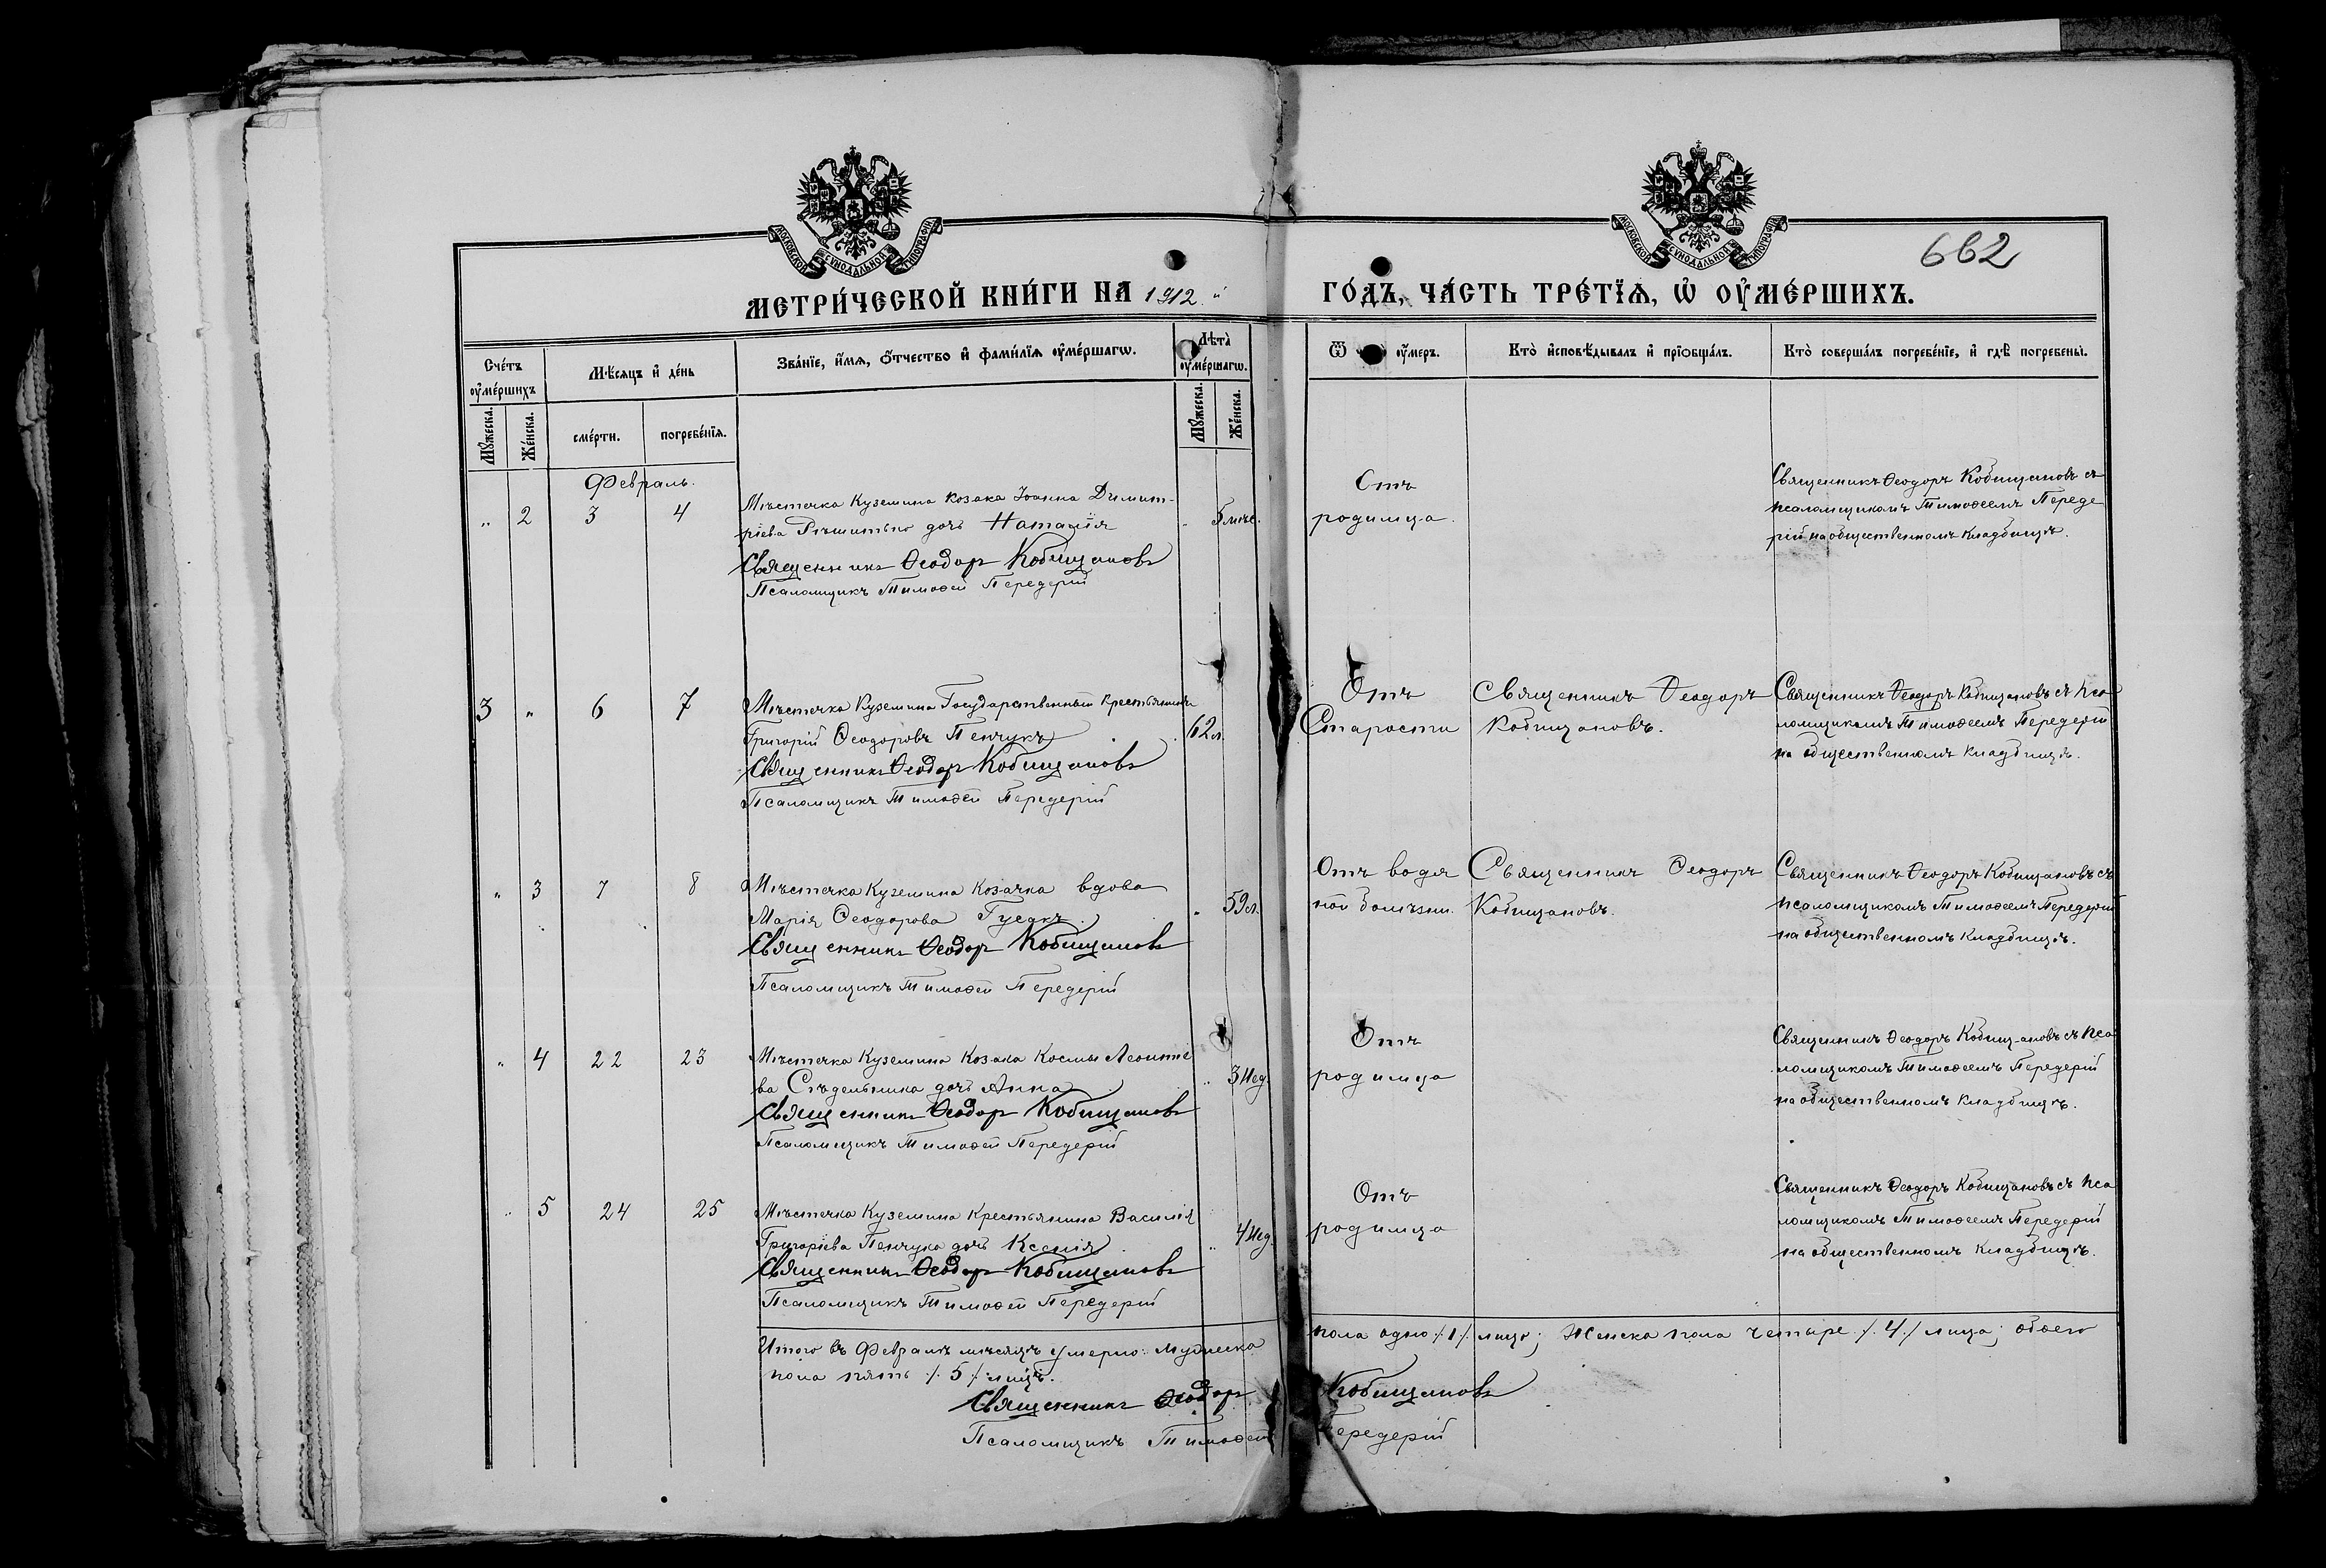 МОСКОВСКОЙ СѴНОДАЛЬНОЙ ТИПОГРАФІИ
МОСКОВСКОЙ СѴНОДАЛЬНОЙ ТИПОГРАФІИ
662
МЕТРИ́ЧЕСКОЙ КНИ́ГИ НА 1912 й ГО́ДЪ, ЧА́СТЬ ТРЕ́ТЇѦ, Ѡ҆ ОУ҆МЕ́РШИХЪ.
Сче́тъ оу҆ме́ршихъ
Мѣ́сяцъ и҆ де́нь
Зва́нїе, и҆́мя, ѻ҆́тчество и҆ фами́лїя оу҆ме́ршагѡ.
Лѣта̀ оу҆ме́ршагѡ.
Ѿ оу҆́меръ.
Кто̀ и҆сповѣ́дывалъ и҆ прїѻбща́лъ.
Кто̀ соверша́лъ погребе́нїе, и҆ гдѣ̀ погребены̀.
Мꙋ́жеска.
Же́нска.
сме́рти.
погребе́нїя.
Мꙋ́жеска.
Же́нска.
Февраль.
" 2 3 4 Мѣстечка Куземина козака Іоанна Димит-
ріева Рѣшитько дочь Наталія " 5 мѣс.
Священникъ Ѳеодор Кобищановъ
Псаломщикъ Тимоѳей Передерій
Отъ
родимца.
Священникъ Ѳеодоръ Кобищановъ съ
псаломщикомъ Тимоѳеемъ Переде
рій на общественномъ кладбищѣ.
3 " 6 7 Мѣстечка Куземина Государственный крестьянинъ
Григорій Ѳеодоровъ Пенчукъ 62 л.
Священникъ Ѳеодор Кобищановъ
Псаломщикъ Тимоѳей Передерій
Отъ
Старости
Священникъ Ѳеодоръ
Кобищановъ.
Священникъ Ѳеодоръ Кобищановъ съ пса
ломщикомъ Тимоѳеемъ Передерій
на общественномъ кладбищѣ.
" 3 7 8 Мѣстечка Куземина козачка вдова
Марія Ѳеодорова Гусакъ. " 59 л.
Священникъ Ѳеодор Кобищановъ
Псаломщикъ Тимоѳей Передерій
Отъ водя
ной болѣзни.
Священникъ Ѳеодоръ
Кобищановъ.
Священникъ Ѳеодоръ Кобищановъ съ
псаломщикомъ Тимоѳеемъ Передерій
на общественномъ кладбищѣ.
" 4 22 23 Мѣстечка Куземина козака Космы Леонтіе
ва Сѣдельника дочь Анна. " 3 нед.
Священникъ Ѳеодор Кобищановъ
Псаломщикъ Тимоѳей Передерій
Отъ
родимца
Священникъ Ѳеодоръ Кобищановъ съ пса
ломщикомъ Тимоѳеемъ Передерій
на общественномъ кладбищѣ.
" 5 24 25 Мѣстечка Куземина крестьянина Василія
Григоріева Пенчука дочь Ксенія. " 4 нед.
Священникъ Ѳеодор Кобищановъ
Псаломщикъ Тимоѳей Передерій
Отъ
родимца
Священникъ Ѳеодоръ Кобищановъ съ пса
ломщикомъ Тимоѳеемъ Передерій
на общественномъ кладбищѣ.
Итого въ Февралѣ мѣсяцѣ умерло: мужеска пола одно /1/ лицо; женска пола четыре /.4/ лица; обоего
пола пять /.5/ лицъ.
Священникъ Ѳеодор Кобищановъ
Псаломщикъ Тимоѳей Передерій